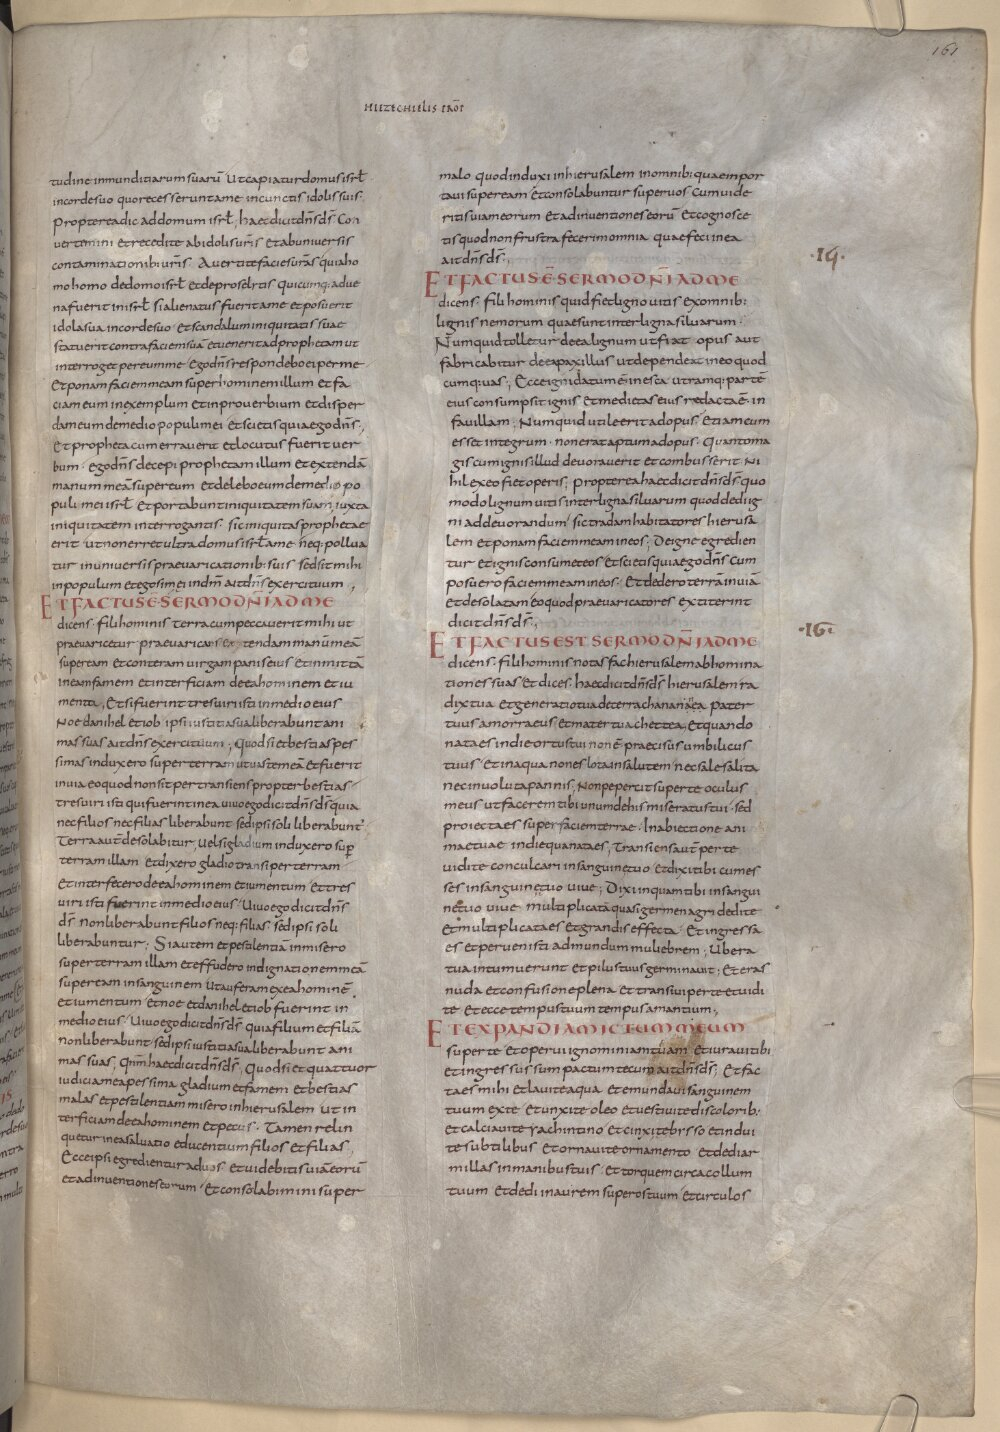 161
HIEZECHIELIS PROP
tudine inmunditiarum suarū Ut capiatur domus isrł
in corde suo quo recesserunt a me in cunctis idolis suis·
Propterea dic ad domum isrł, haec dicit dn̄s ds̄ Con
vertimini et recedite ab idolis uris̄ et ab universis
contaminationib; uris̄· Avertite facies ur̄as quia ho
mo homo de domo isrł et de proselytis quicumq; adve
na fuerit in isrł si alienatus fuerit a me et posuerit
idola sua in corde suo et scandalum iniquitatis suae
statuerit contra faciem suā et venerit ad prophetam ut
interroget per eum me Ego dn̄s respondebo ei per me
Et ponam faciem meam super hominem illum et fa
ciam eum in exemplum et in proverbium et disper
dam eum de medio populi mei et scietis quia ego dn̄s;
Et propheta cum erraverit et locutus fuerit ver
bum· ego dn̄s decepi prophetam illum et extendā
manum meā super eum et delebo eum de medio po
puli mei isrł Et portabunt iniquitatem suam juxta
iniquitatem interrogantis· sic iniquitas prophetae
erit ut non erret ultra domus isrł a me neq; pollua
tur in universis praevaricationib; suis sed sit mihi
in populum et ego sim ei in dm̄ ait dn̄s exercituum;
ET FACTUS E· SERMO DN̄I AD ME
dicens· fili hominis terra cum peccaverit mihi ut
praevaricetur praevaricans extendam manū meā
super eam et conteram virgam panis eius et inmittā
in eam famem et interficiam de ea hominem et iu
menta, Et si fuerint tres viri isti in medio eius
Noe danihel et iob ipsi iustitia sua liberabunt ani
mas suas ait dn̄s exercituum; Quod si et bestias pes
simas induxero super terram ut vastem eā Et fuerit
invia eo quod non sit pertransiens propter bestias
tres viri isti qui fuerint in ea vivo ego dicit dn̄s ds̄ quia
nec filios nec filias liberabunt sed ipsi soli liberabunt
Terra aut̄ desolabitur, vel si gladium induxero sup̄
terram illam et dixero gladio transi per terram
Et interfecero de ea hominem et iumentum Et tres
viri isti fuerint in medio eius· Vivo ego dicit dn̄s
ds̄ non liberabunt filios neq; filias sed ipsi soli
liberabuntur; Si autem et pestilentiā inmisero
super terram illam et effudero indignationem meā
super eam in sanguinem Ut auferam ex ea hominē
et iumentum Et noe et danihel et iob fuerint in
medio eius· Vivo ego dicit dn̄s ds̄ quia filium et filiā
non liberabunt sed ipsi iustitia sua liberabunt ani
mas suas; Qnm̄ haec dicit dn̄s ds̄; Quod si et quattuor
iudicia mea pessima gladium et famem et bestias
malas et pestilentiam misero in hierusalem ut in
terficiam de ea hominem et pecus· Tamen relin
quetur in ea salvatio educentium filios et filias;
Ecce ipsi egredientur ad vos et videbitis viā eorū
et adinventiones eorum· Et consolabimini super
malo quod induxi in hierusalem in omnib; quae inpor
tavi super eam Et consolabuntur super vos Cum vide
ritis viam eorum Et adinventiones eorū Et cognosce
tis quod non frustra fecerim omnia quae feci in ea
ait dn̄s ds̄;
·15·
ET FACTUS E· SERMO DN̄I AD ME
dicens· fili hominis quid fiet ligno vitis ex omnib;
lignis nemorum quae sunt inter ligna silvarum·
Numquid tolletur de ea lignum ut fiat opus aut
fabricabitur de ea paxillus ut dependeat in eo quod
cumq; vas; Ecce igni datum ē in esca utramq; partē
eius consumpsit ignis Et medietas eius redacta ē in
favillam; Numquid utile erit ad opus Etiam cum
esset integrum· non erat aptum ad opus· Quanto ma
gis cum ignis illud devoraverit et combusserit· Ni
hil ex eo fiet operis, propterea haec dicit dn̄s ds̄· quo
modo lignum vitis inter ligna silvarum quod dedi ig
ni ad devorandum sic tradam habitatores hierusa
lem et ponam faciem meam in eos; De igne egredien
tur et ignis consumet eos Et scietis quia ego dn̄s Cum
posuero faciem meam in eos· Et dedero terrā inviā
et desolatam eo quod praevaricatores extiterint
dicit dn̄s ds̄;
·16·
ET FACTUS EST SERMO DN̄I AD ME
dicens· fili hominis notas fac hierusalem abhomina
tiones suas Et dices· haec dicit dn̄s ds̄ hierusalem ra
dix tua et generatio tua de terra chananaea pater
tuus amorraeus et mater tua chettea, Et quando
nata es in die ortus tui non ē praecisus umbilicus
tuus· Et in aqua non es lota in salutem nec sale salita
nec involuta pannis· Non pepercit super te oculus
meus ut facerem tibi unum de his miseratus tui· sed
proiecta es super faciem terrae· In abiectione ani
mae tuae in die qua nata es, Transiens aut̄ per te
vidi te conculcari in sanguine tuo et dixi tibi cum es
ses in sanguine tuo vive; Dixi inquam tibi in sangui
ne tuo vive multiplicatā quasi germen agri dedi te
et multiplicata es et grandis effecta· Et ingressa
es et pervenisti ad mundum muliebrem; Ubera
tua intumuerunt et pilus tuus germinavit; Et eras
nuda et confusione plena et transivi per te et vidi
te Et ecce tempus tuum tempus amantium;
ET EXPANDI AMICTUM MEUM
super te et operui ignominiam tuam et iuravi tibi
et ingressus sum pactum tecum ait dn̄s ds̄; Et fac
ta es mihi et lavi te aqua et emundavi sanguinem
tuum ex te et unxi te oleo et vestivi te discolorib;
et calciavi te yachintino et cinxi te bysso et indui
te subtilibus et ornavi te ornamento et dedi ar
millas in manibus tuis et torquem circa collum
tuum et dedi inaurem super os tuum et circulos